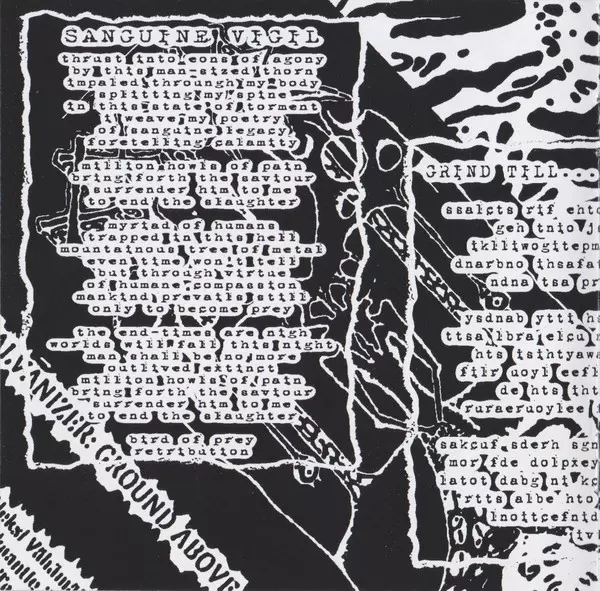 SANGUINE VIGIL
thrust into eons of agony
by this man-sized thorn
impaled through my body
splitting my spine
in this state of torment
i weave my poetry
of sanguine legacy
foretelling calamity
million howls of pain
bring forth the saviour
surrender him to me
to end the slaughter
myriad of humans
trapped in this hell
mountainous tree of metal
even time won't fell
but through virtue
of human compassion
mankind prevails still
only to become prey
the end-times are nigh
worlds will fall this night
man shall be no more
outlived extinct
million howls of pain
bring forth the saviour
surrender him to me
to end the slaughter
bird of prey
retribution
GRIND TILL...
ssalcts rif ehto
geh tnio j
dnarbno ihsafat
ndna tsa pr
ysdnab ytti hs
hts isihtyawa
filr uoyl eefl
de hts iht
ruraeruoylee f
sakcuf sderh sgn
mor fde dolpxey
latot dabg ni kc
rtts albe hto
lnoitcefnid
GALVANIZER: GROUND ABOVE